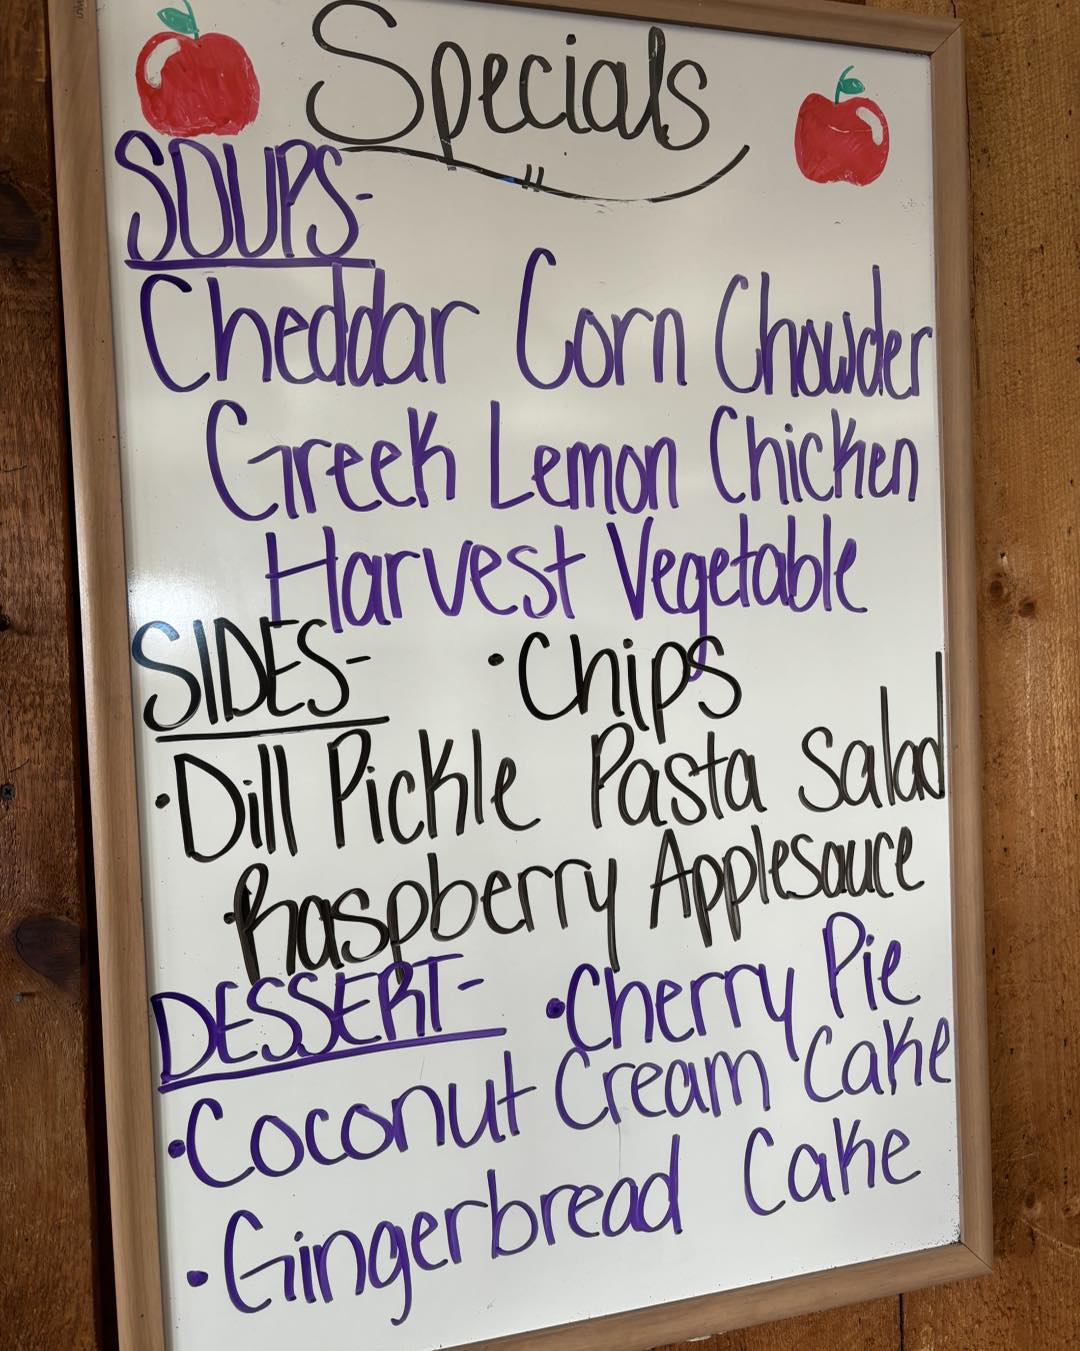 Specials
SOUPS-
Cheddar Corn Chowder
Greek Lemon Chicken
Harvest Vegetable
SIDES- •Chips
•Dill Pickle Pasta Salad
•Raspberry Applesauce
DESSERT- •Cherry Pie
•Coconut Cream Cake
•Gingerbread Cake